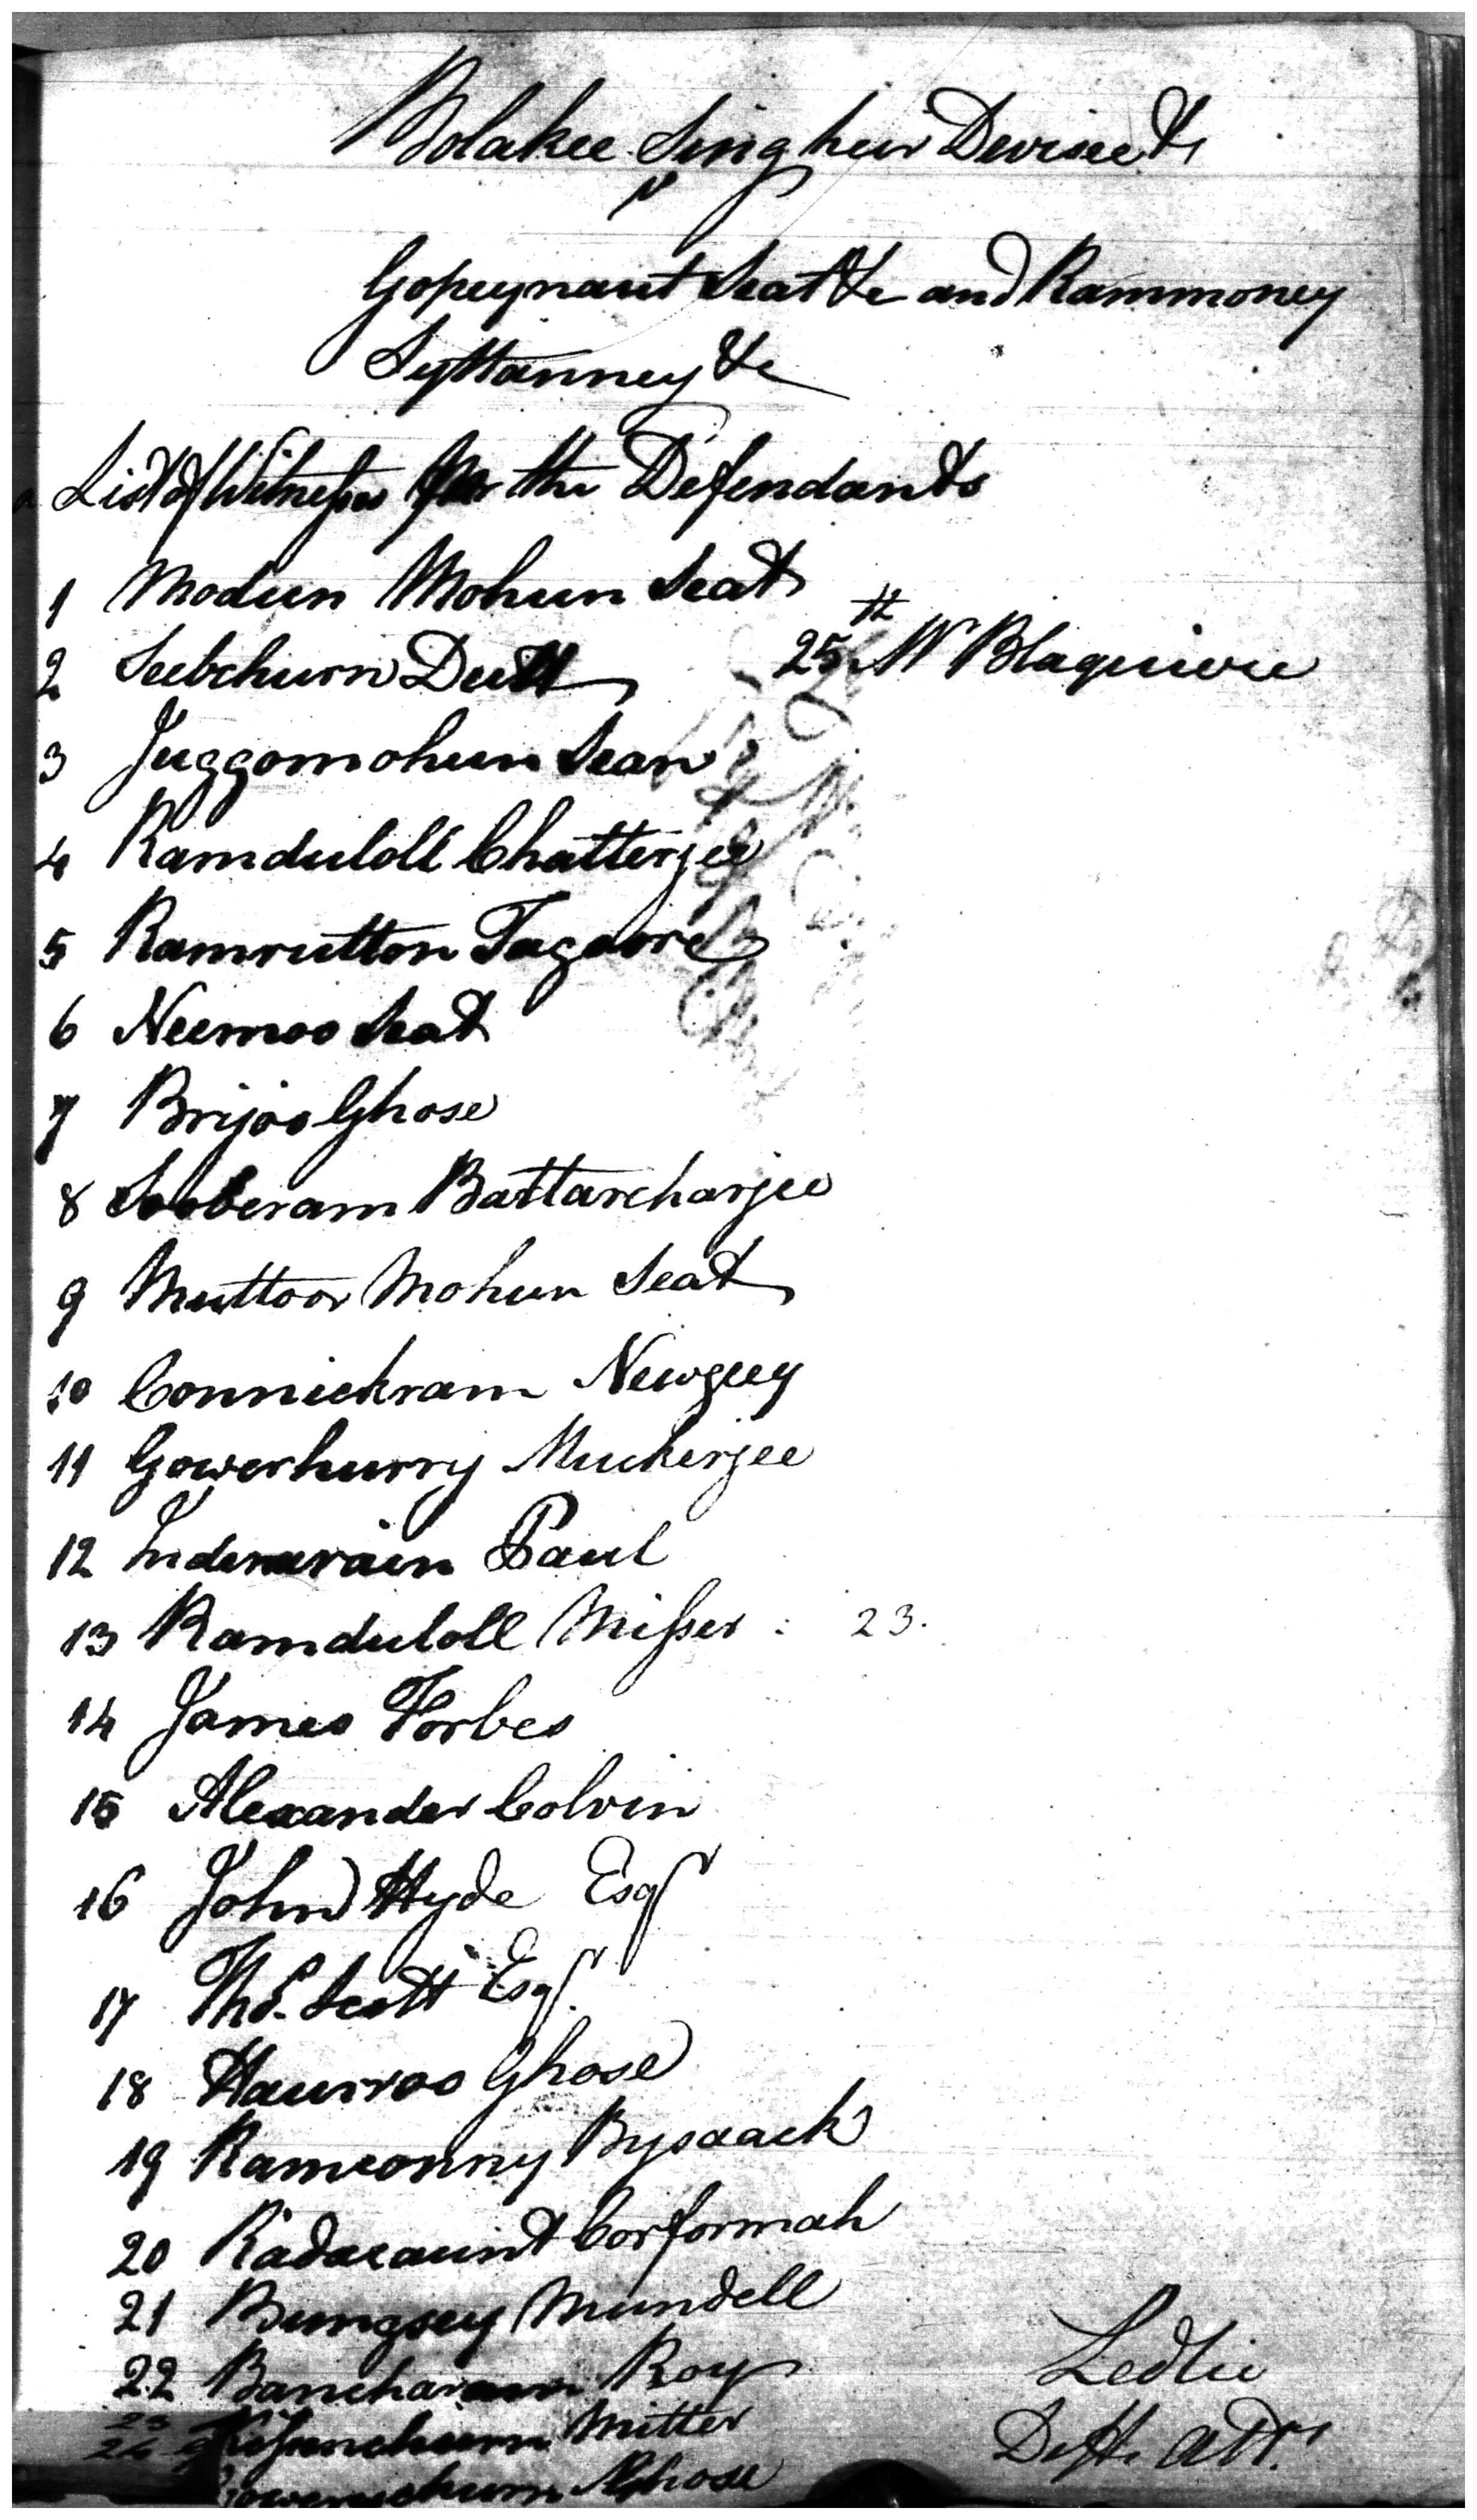 Bolakee Sing heir Devisee &c
v
Gopeynaut Seat &c and Rammoney
Syttanney &c
List of Witnesses for the Defendants
1 Modun Mohun Seat
2 Seebchurn Dutt
25 W Blaquiere
3 Juggomohun Sean
4 Ramduloll Chatterjee
5 Ramrutton Tagoore
6 Neemoo Seat
7 Brijoo Ghose
8 Sooberam Battarcharjee
9 Muttoor Mohun Seat
10 Connickram Newgey
11 Gowerhurry Muckerjee
12 Indernarain Paul
13 Ramduloll Misser : 23.
14 James Forbes
15 Alexander Colvin
16 John Hyde Esqr
17 Thos. Scott Esqr
18 Haurroo Ghose
19 Ramconny Bysaack
20 Radacaunt Corformah
21 Bungsey Mundell
22 Bancharam Roy
Ledlie
23 Kissenchurn Mitter
Defts Atty.
24 Ghose